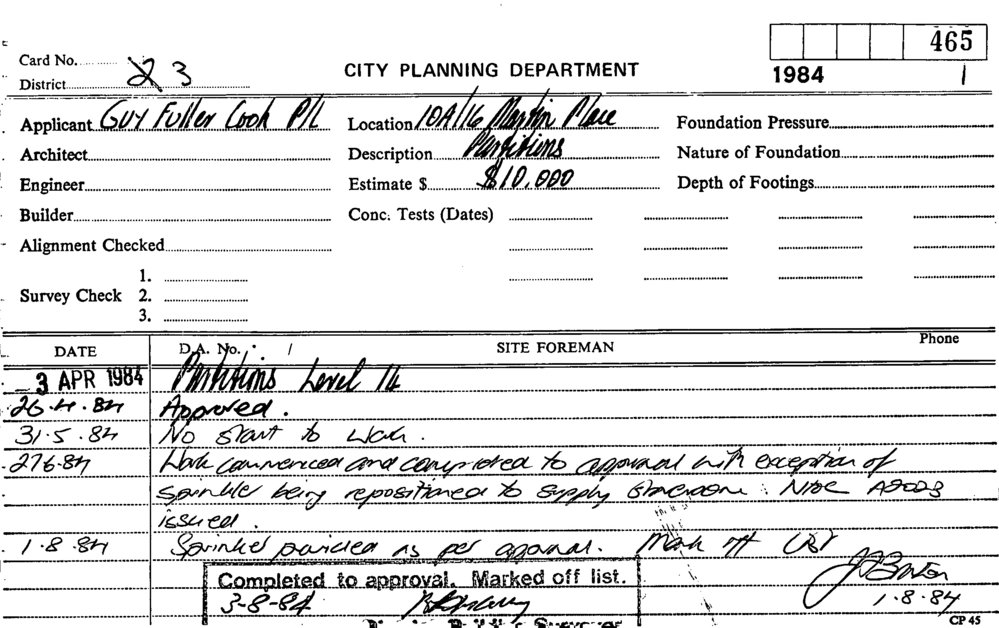 465
1984 1
Card No. 
District 23
CITY PLANNING DEPARTMENT
Applicant GUY Fuller Cook P/L Location 10A/16 Martin Place Foundation Pressure
Architect Description Partitions Nature of Foundation
Engineer Estimate $ $10,000 Depth of Footings
Builder Conc. Tests (Dates)
Alignment Checked
1.
Survey Check 2.
3.
DATE D.A. No. / SITE FOREMAN Phone
3 APR 1984 Partitions Level 14
26.4.84 Approved.
31.5.84 No start to work.
27.6.84 Work commenced and completed to approval with exception of
sprinkler being repositioned to supply storeroom: Ntce
issued.
1.8.84 Sprinkler provided as per approval. Mark off list
Completed to approval. Marked off list.
3-8-84
1.8.84
CP 45